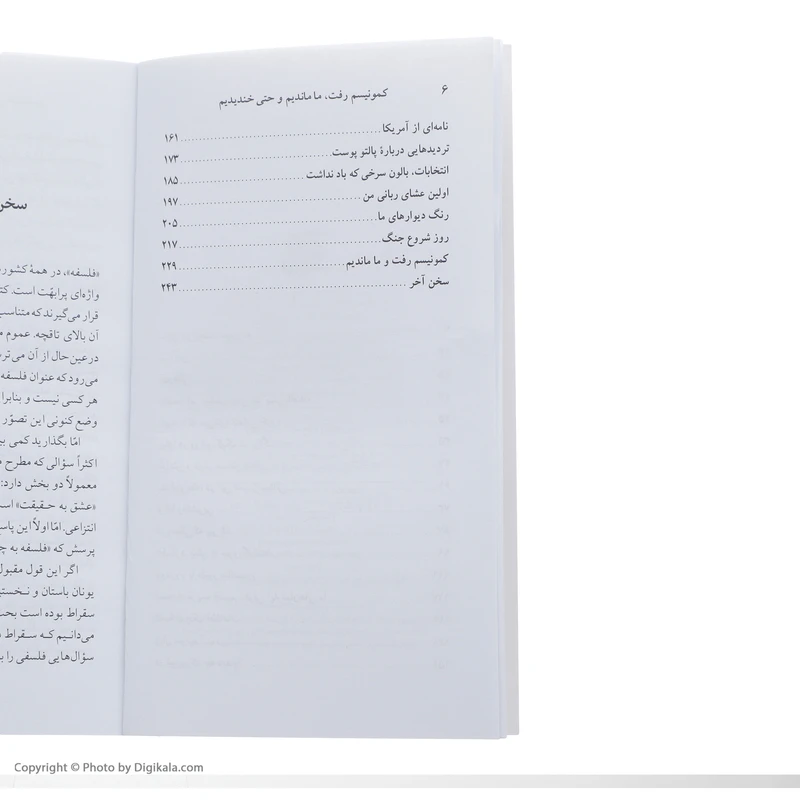 ۶ کمونیسم رفت، ما ماندیم و حتی خندیدیم
نامه‌ای از آمریکا ........ ۱۶۱
تردیدهایی دربارهٔ پالتو پوست ........ ۱۷۳
انتخابات، بالون سرخی که باد نداشت ........ ۱۸۵
اولین عشای ربانی من ........ ۱۹۷
رنگ دیوارهای ما ........ ۲۰۵
روز شروع جنگ ........ ۲۱۷
کمونیسم رفت و ما ماندیم ........ ۲۲۹
سخن آخر ........ ۲۴۳
سخن
«فلسفه»، در همهٔ کشور
واژه‌ای پرابهّت است.
قرار می‌گیرند که متناسب
آن بالای تاقچه. عموم
درعین‌حال از آن
می‌رود که عنوان فلسفه
هر کسی نیست و
وضع کنونی این تصوّر
امّا بگذارید کمی
اکثراً سؤالی که مطرح
معمولاً دو بخش دارد:
«عشق به حقیقت»
انتزاعی. امّا اولاً این
پرسش که «فلسفه به
اگر این قول مقبول
یونان باستان و
سقراط بوده است
می‌دانیم که سقراط
سؤال‌هایی فلسفی را
Copyright © Photo by Digikala.com